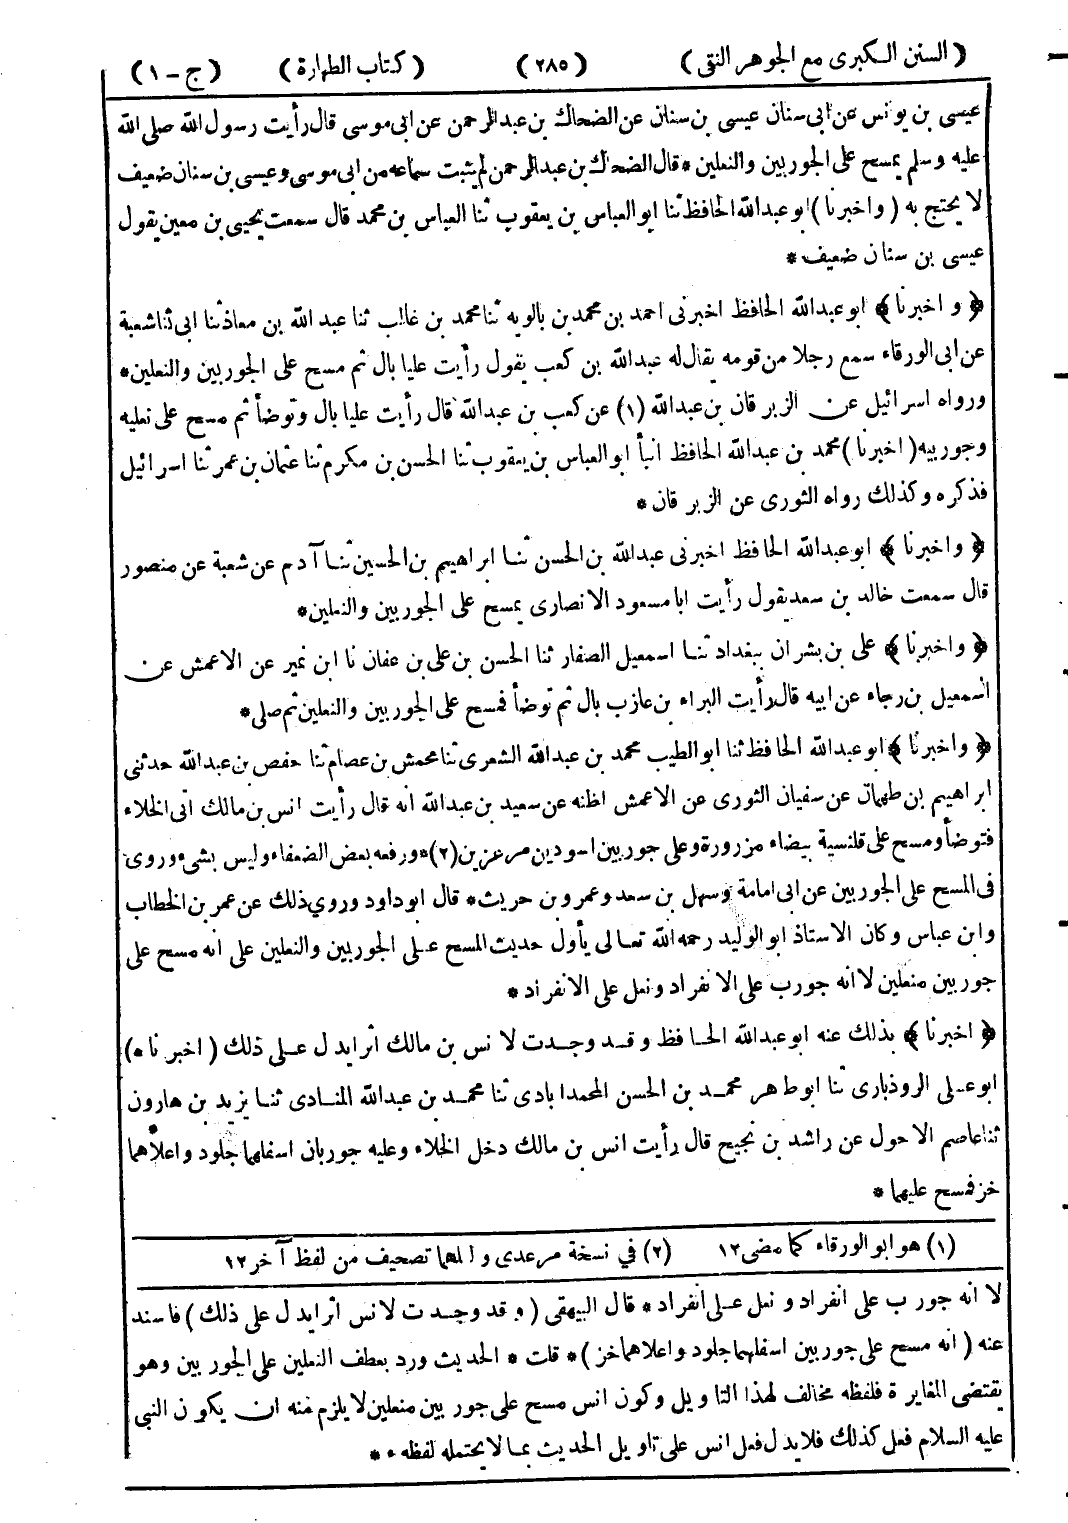 ( السنن الكبرى مع الجوهر النقى ) ( ٢٨٥ ) ( كتاب الطهارة ) ( ج - ١ )
عيسى بن يونس عن ابى سنان عيسى بن سنان عن الضحاك بن عبد الرحمن عن ابى موسى قال رأيت رسول الله صلى الله
عليه وسلم يمسح على الجوربين والنعلين * قال الضحاك بن عبد الرحمن لم يثبت سماعه من ابى موسى وعيسى بن سنان ضعيف
لا يحتج به ( واخبرنا ) ابو عبد الله الحافظ ثنا ابو العباس بن يعقوب ثنا العباس بن محمد قال سمعت يحيى بن معين يقول
عيسى بن سنان ضعيف *
﴿ و اخبرنا ﴾ ابو عبد الله الحافظ اخبرنى احمد بن محمد بن بالويه ثنا محمد بن غالب ثنا عبد الله بن معاذ ثنا ابى ثنا شعبة
عن ابى الورقاء سمع رجلا من قومه يقال له عبد الله بن كعب يقول رأيت عليا بال ثم مسح على الجوربين والنعلين *
ورواه اسرائيل عن الزبرقان بن عبد الله (١) عن كعب بن عبد الله قال رأيت عليا بال وتوضأ ثم مسح على نعليه
وجوربيه ( اخبرنا ) محمد بن عبد الله الحافظ انبأ ابو العباس بن يعقوب ثنا الحسن بن مكرم ثنا عثمان بن عمر ثنا اسرائيل
فذكره وكذلك رواه الثورى عن الزبرقان *
﴿ واخبرنا ﴾ ابو عبد الله الحافظ اخبرنى عبد الله بن الحسن ثنا ابراهيم بن الحسين ثنا آدم عن شعبة عن منصور
قال سمعت خالد بن سعد يقول رأيت ابا مسعود الانصارى يمسح على الجوربين والنعلين *
﴿ واخبرنا ﴾ على بن بشران ببغداد ثنا اسمعيل الصفار ثنا الحسن بن على بن عفان نا ابن نمير عن الاعمش عن
اسمعيل بن رجاء عن ابيه قال رأيت البراء بن عازب بال ثم توضأ فمسح على الجوربين والنعلين ثم صلى *
﴿ واخبرنا ﴾ ابو عبد الله الحافظ ثنا ابو الطيب محمد بن عبد الله الشعرى ثنا محمش بن عصام ثنا حفص بن عبد الله حدثنى
ابراهيم بن طهمان عن سفيان الثورى عن الاعمش اظنه عن سعيد بن عبد الله انه قال رأيت انس بن مالك اتى الخلاء
فتوضأ ومسح على قلنسية بيضاء مزرورة وعلى جوربين اسودين مرعزين (٢) * ورفعه بعض الضعفاء وليس بشىء وروى
فى المسح على الجوربين عن ابى امامة وسهل بن سعد وعمرو بن حريث * قال ابو داود وروي ذلك عن عمر بن الخطاب
وابن عباس وكان الاستاذ ابو الوليد رحمه الله تعالى يأول حديث المسح على الجوربين والنعلين على انه مسح على
جوربين منعلين لا انه جورب على الانفراد ونعل على الانفراد *
﴿ اخبرنا ﴾ بذلك عنه ابو عبد الله الحافظ وقد وجدت لانس بن مالك أثرا يدل على ذلك ( اخبرناه )
ابو على الروذبارى ثنا ابو طاهر محمد بن الحسن المحمداباذى ثنا محمد بن عبد الله المنادى ثنا يزيد بن هارون
ثنا عاصم الاحول عن راشد بن نجيح قال رأيت انس بن مالك دخل الخلاء وعليه جوربان اسفلهما جلود واعلاهما
خز فمسح عليهما *
(١) هو ابو الورقاء كما مضى ١٢ (٢) في نسخة مرعدى و لعلهما تصحيف من لفظ آخر ١٢
لا انه جورب على انفراد ونعل على انفراد * قال البيهقى ( وقد وجدت لانس أثرا يدل على ذلك ) فاسند
عنه ( انه مسح على جوربين اسفلهما جلود واعلاهما خز ) * قلت * الحديث ورد بعطف النعلين على الجوربين وهو
يقتضى المغايرة فلفظه مخالف لهذا التاويل وكون انس مسح على جوربين منعلين لا يلزم منه ان يكون النبى
عليه السلام فعل كذلك فلا يدل فعل انس على تاويل الحديث بما لا يحتمله لفظه * *